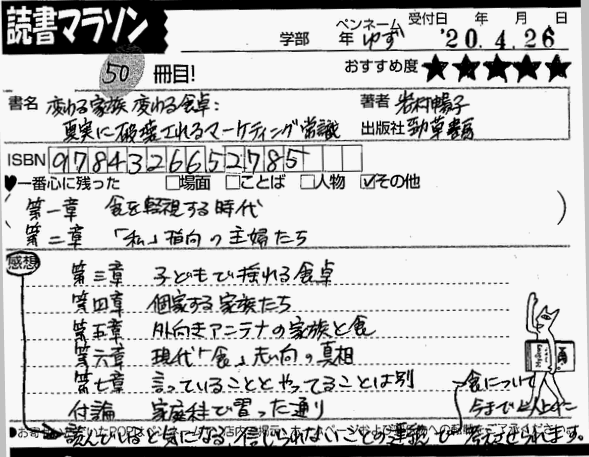 読書マラソン
ペンネーム 受付日 年 月 日
学部 年 ゆず '20.4.26
50 冊目!
おすすめ度 ★★★★★
書名 変わる家族 変わる食卓: 著者 岩村暢子
真実に破壊されるマーケティング常識 出版社 勁草書房
ISBN 9784326652785
♥一番心に残った □場面 □ことば □人物 ☑その他
第一章 食を軽視する時代
第二章 「私」指向の主婦たち
感想
第三章 子どもで揺れる食卓
第四章 個家する家族たち
第五章 外向きアンテナの家族と食
第六章 現代「食」志向の真相
第七章 言っていることとやってることは別
付論 家庭科で習った通り
食について
今まで以上に
読んでいると気になる、信じられないことの連続で 考えさせられます。